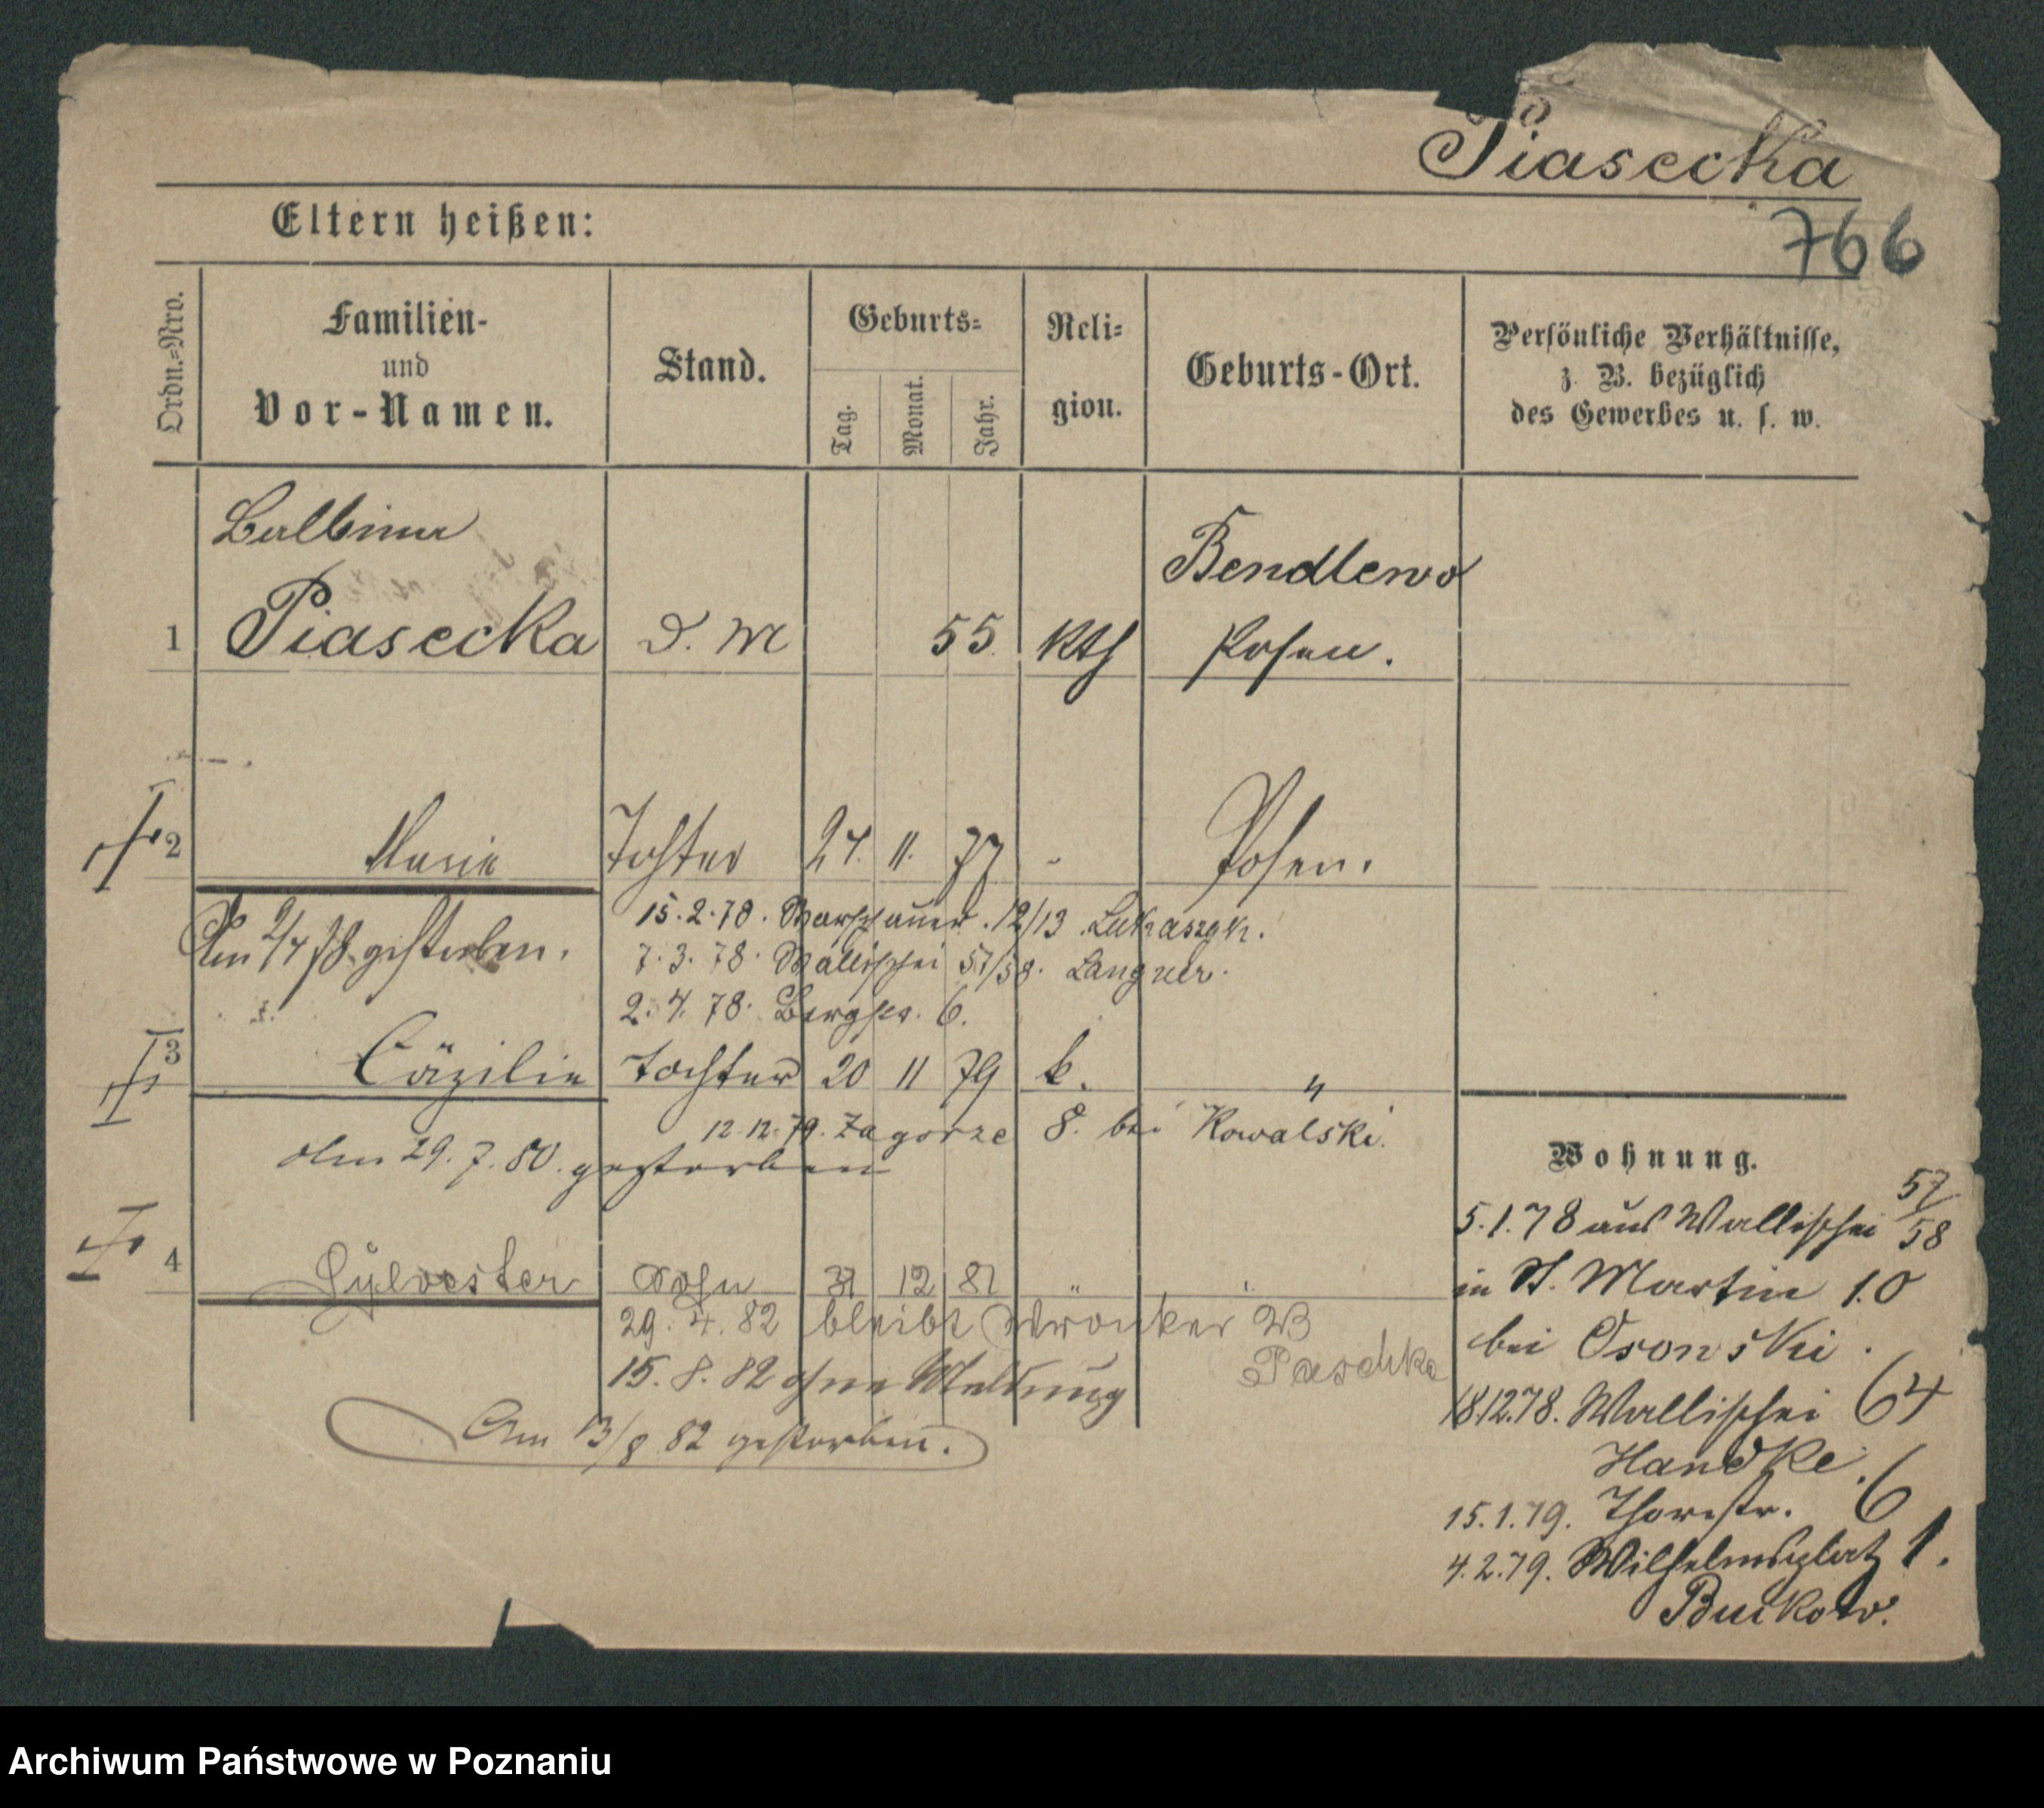 Piasecka
766
Eltern heißen:
Ordn.=Nro.
Familien-
und
Vor-Namen.
Stand.
Geburts=
Tag.
Monat.
Jahr.
Reli=
gion.
Geburts-Ort.
Persönliche Verhältnisse,
z. B. bezüglich
des Gewerbes u. s. w.
Balbina
Bendlewo
1 Piasecka D. M 55. Kth Posen.
2 Marie Tochter 27. 11. 77 - Posen.
15. 2. 78. Warschauer. 12/13. Lukaszyk.
Am 2/4 78 gestorben.
7. 3. 78. Wallischei 57/58. Langner.
2. 4. 78. Bergstr. 6.
3 Cäzilie Tochter 20 11 79 k. "
12. 12. 79. Zagorze 8. bei Kowalski.
Am 29. 7. 80. gestorben
4 Sylvester Sohn 31 12 81 " "
29. 4. 82 bleibt Wronker
Paschke
15. 8. 82 ohne Meldung
Am 13/8 82 gestorben.
Wohnung.
5. 1. 78 aus Wallischei 57/58
in St. Martin 10
bei Osonski.
18.12.78. Wallischei 64
Handke.
15. 1. 79. Thorstr. 6
4. 2. 79. Wilhelmsplatz 1.
Buckow.
Archiwum Państwowe w Poznaniu